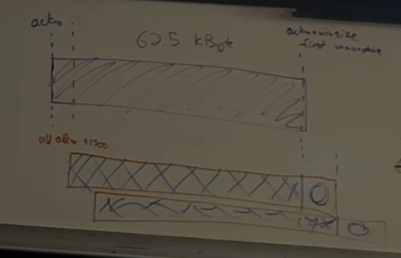 ackno
62.5 kByte
ackno+winsize
first unacceptable
old ackno +1500